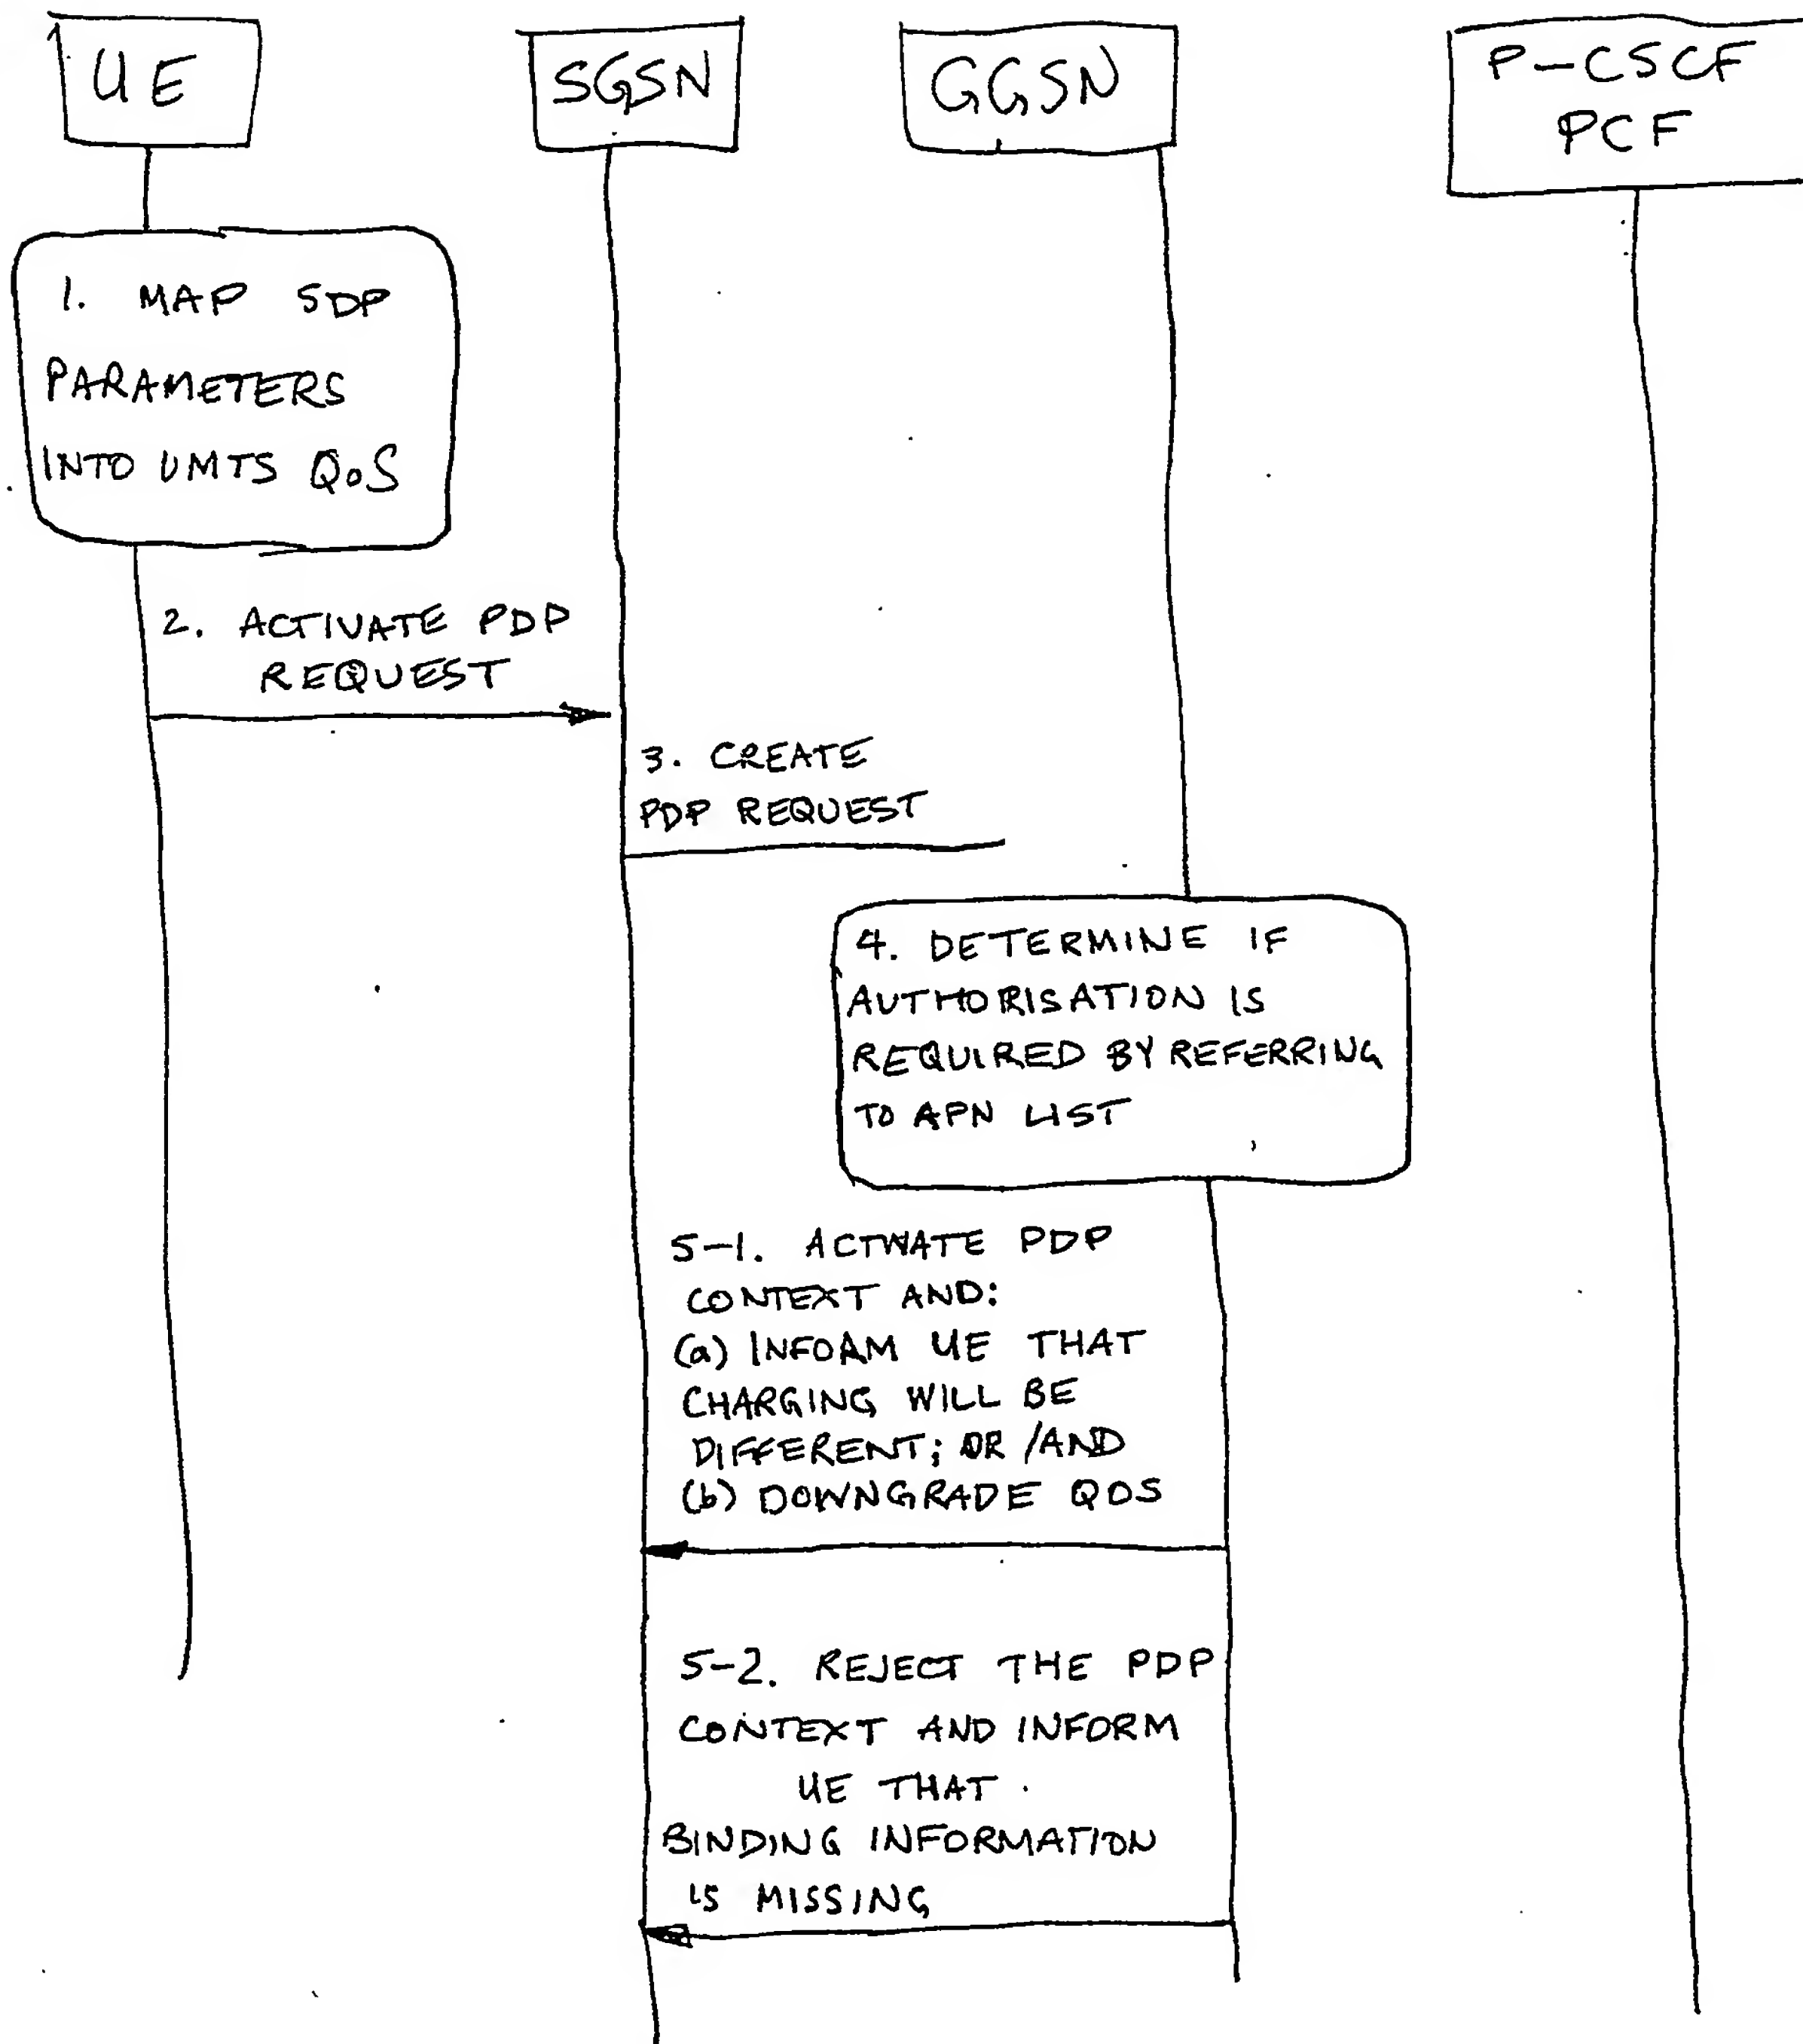 UE
SGSN
GGSN
P-CSCF
PCF
1. MAP SDP
PARAMETERS
INTO UMTS QoS
2. ACTIVATE PDP
REQUEST
3. CREATE
PDP REQUEST
4. DETERMINE IF
AUTHORISATION IS
REQUIRED BY REFERRING
TO APN LIST
5-1. ACTIVATE PDP
CONTEXT AND:
(a) INFORM UE THAT
CHARGING WILL BE
DIFFERENT; OR /AND
(b) DOWNGRADE QOS
5-2. REJECT THE PDP
CONTEXT AND INFORM
UE THAT
BINDING INFORMATION
IS MISSING